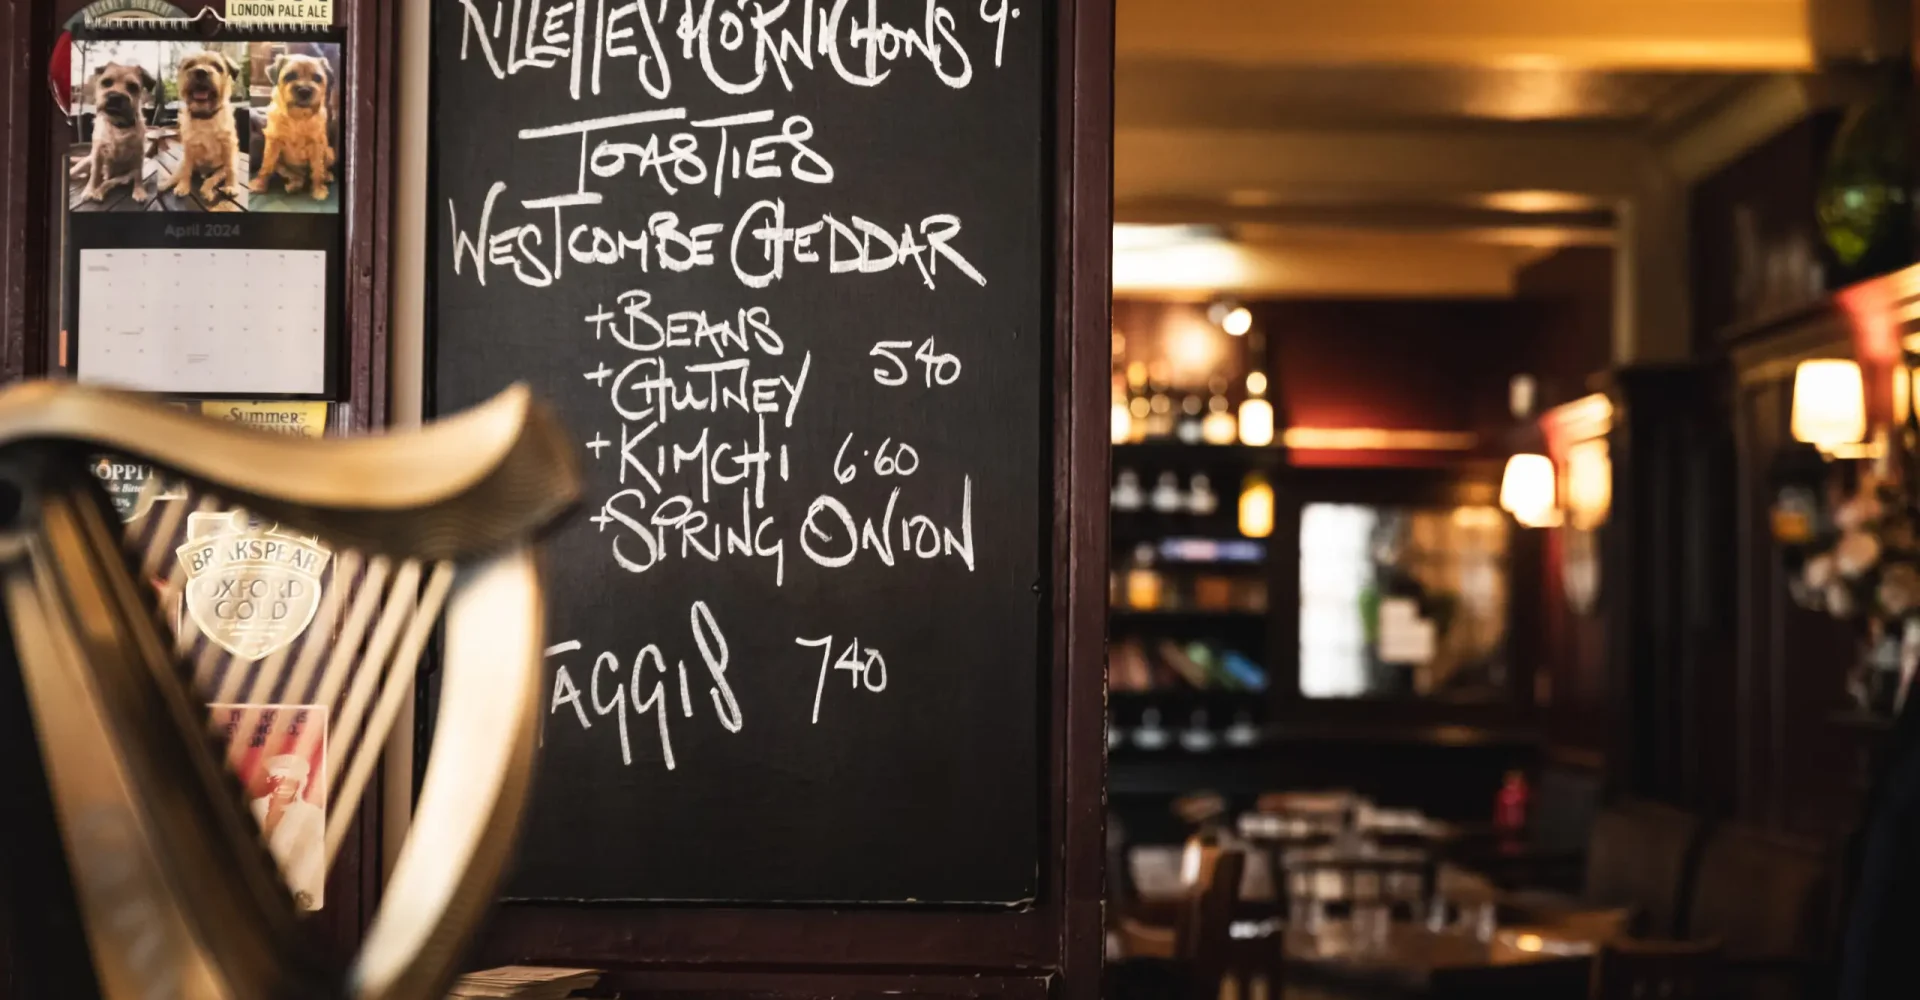 LONDON PALE ALE
RILLETTES & CORNICHONS 9.
TOASTIES
WESTCOMBE CHEDDAR
+BEANS
+CHUTNEY 540
+KIMCHI 6.60
+SPRING ONION
AGGIS 740
April 2024
Summer
BRAKSPEAR
OXFORD
GOLD